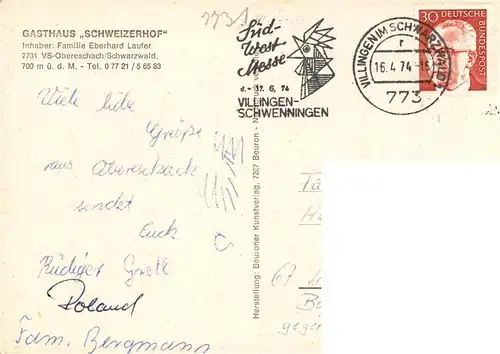 2231
GASTHAUS „SCHWEIZERHOF"
Inhaber: Familie Eberhard Laufer
7731 VS-Obereschach/Schwarzwald,
700 m ü. d. M. - Tel. 0 77 21 / 5 65 83
Viele liebe
Grüße
aus Obereschach
sendet
Euch
Rüdiger Gretl
Roland
Fam. Bergmann
Herstellung: Beuroner Kunstverlag, 7207 Beuron
Süd-
West
Messe
17. 6. 74
VILLINGEN-
SCHWENNINGEN
VILLINGEN IM SCHWARZWALD 1
r
16.4.74
773
30 DEUTSCHE
BUNDESPOST
67
gegen